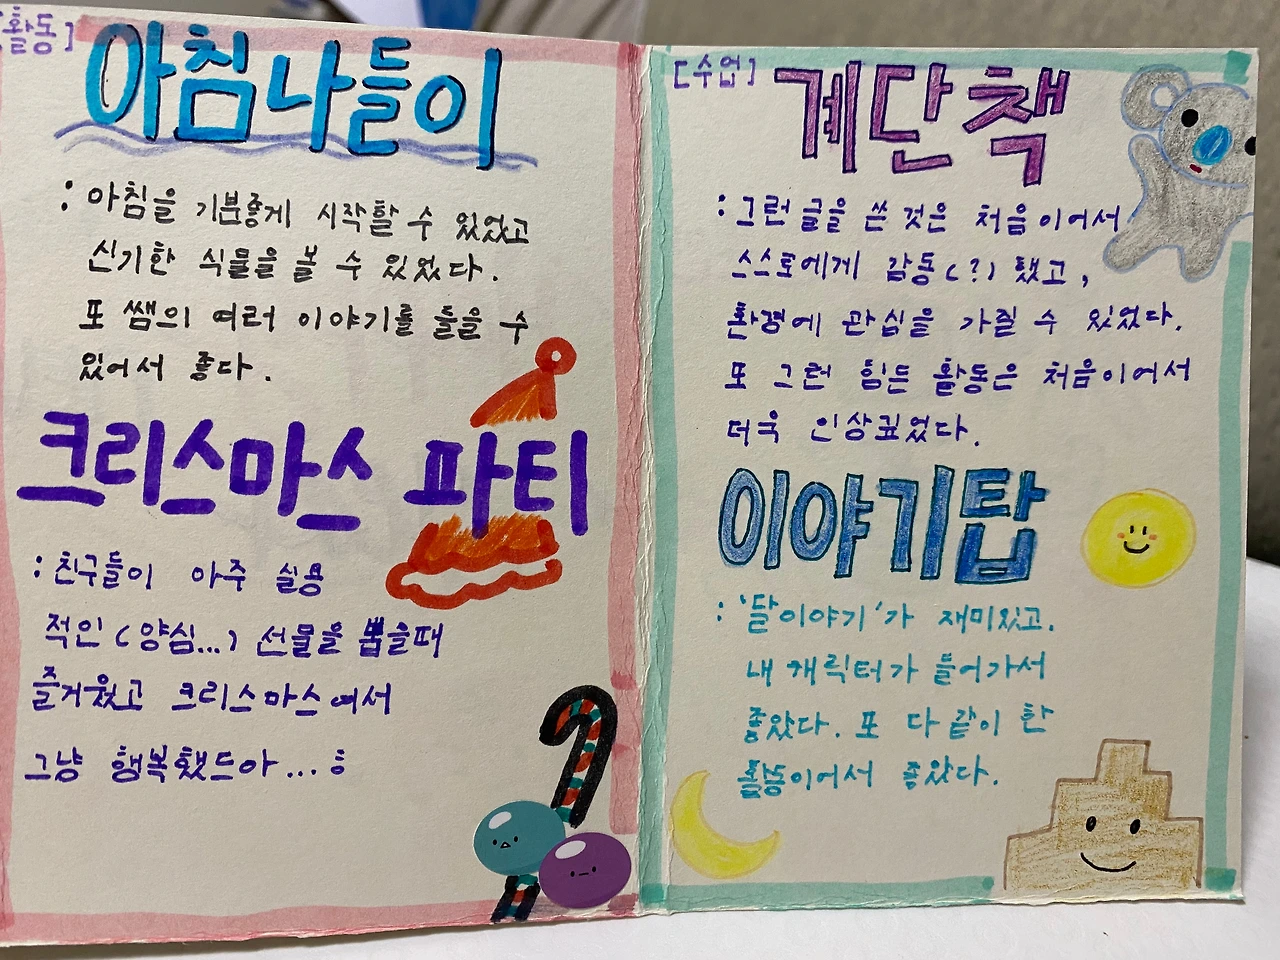 [활동]
아침나들이
: 아침을 기분좋게 시작할 수 있었고
신기한 식물을 볼 수 있었다.
또 쌤의 여러 이야기를 들을 수
있어서 좋다.
크리스마스 파티
: 친구들이 아주 실용
적인 (양심...) 선물을 뽑을때
즐거웠고 크리스마스여서
그냥 행복했드아... ㅎ
[수업]
계단책
: 그런 글을 쓴 것은 처음이어서
스스로에게 감동(?)했고,
환경에 관심을 가질 수 있었다.
또 그런 힘든 활동은 처음이어서
더욱 인상깊었다.
이야기탑
: '달이야기'가 재미있고.
내 캐릭터가 들어가서
좋았다. 또 다같이 한
활동이어서 좋았다.